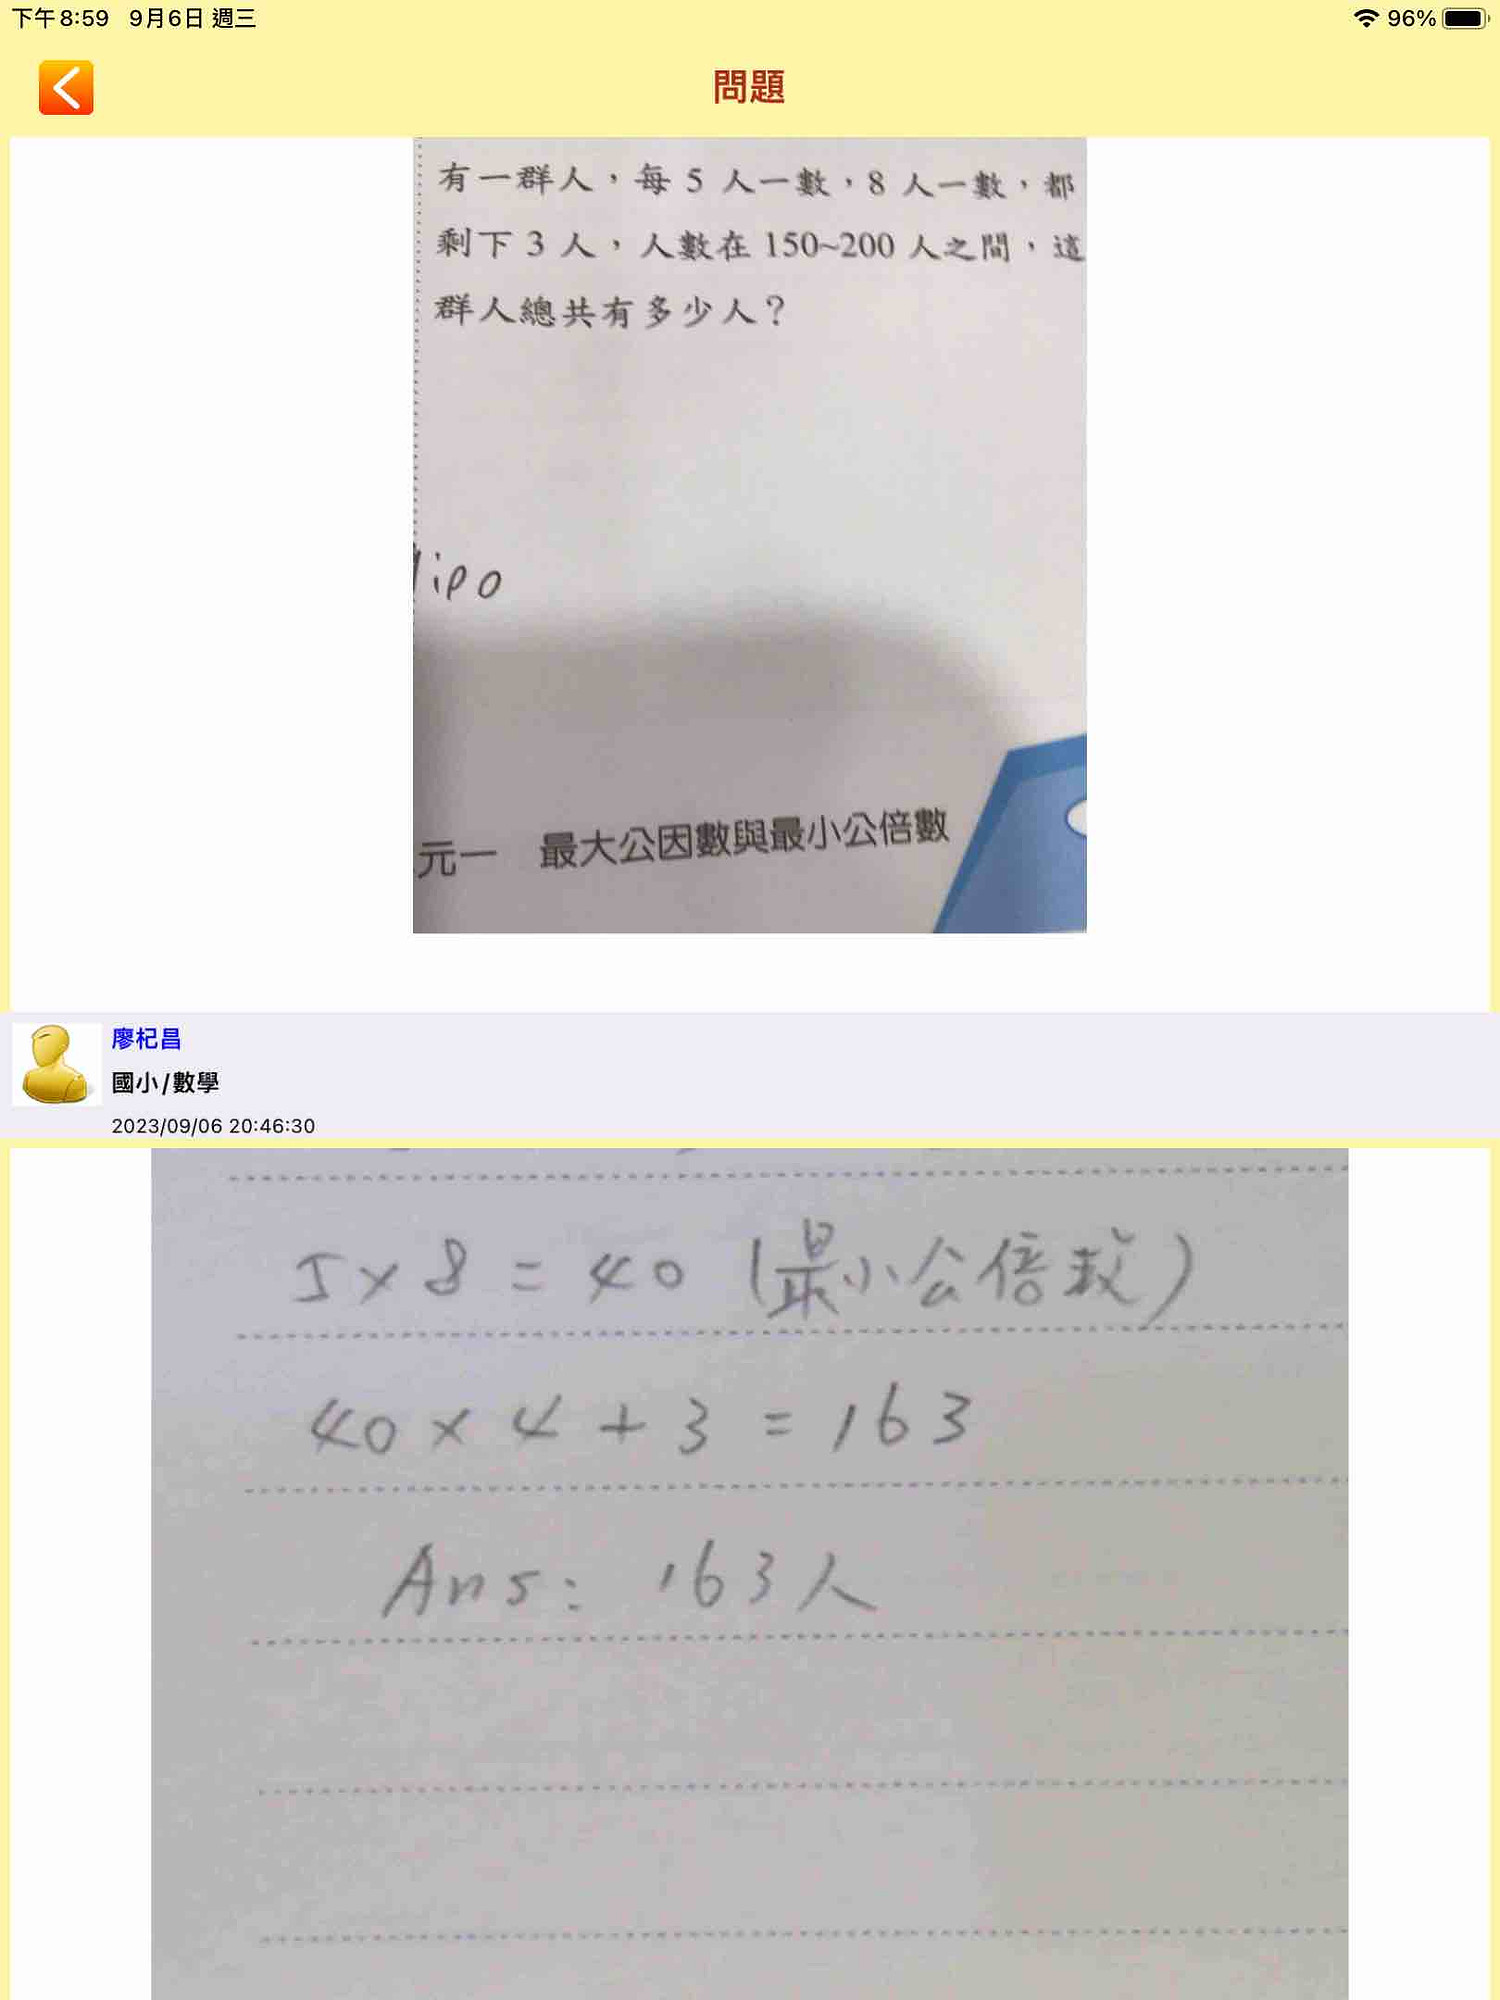 下午8:59 9月6日 週三
96%
問題
有一群人，每 5 人一數，8 人一數，都
剩下 3 人，人數在 150~200 人之間，這
群人總共有多少人？
元一 最大公因數與最小公倍數
廖杞昌
國小/數學
2023/09/06 20:46:30
5×8=40 (最小公倍数)
40×4+3=163
Ans: 163人